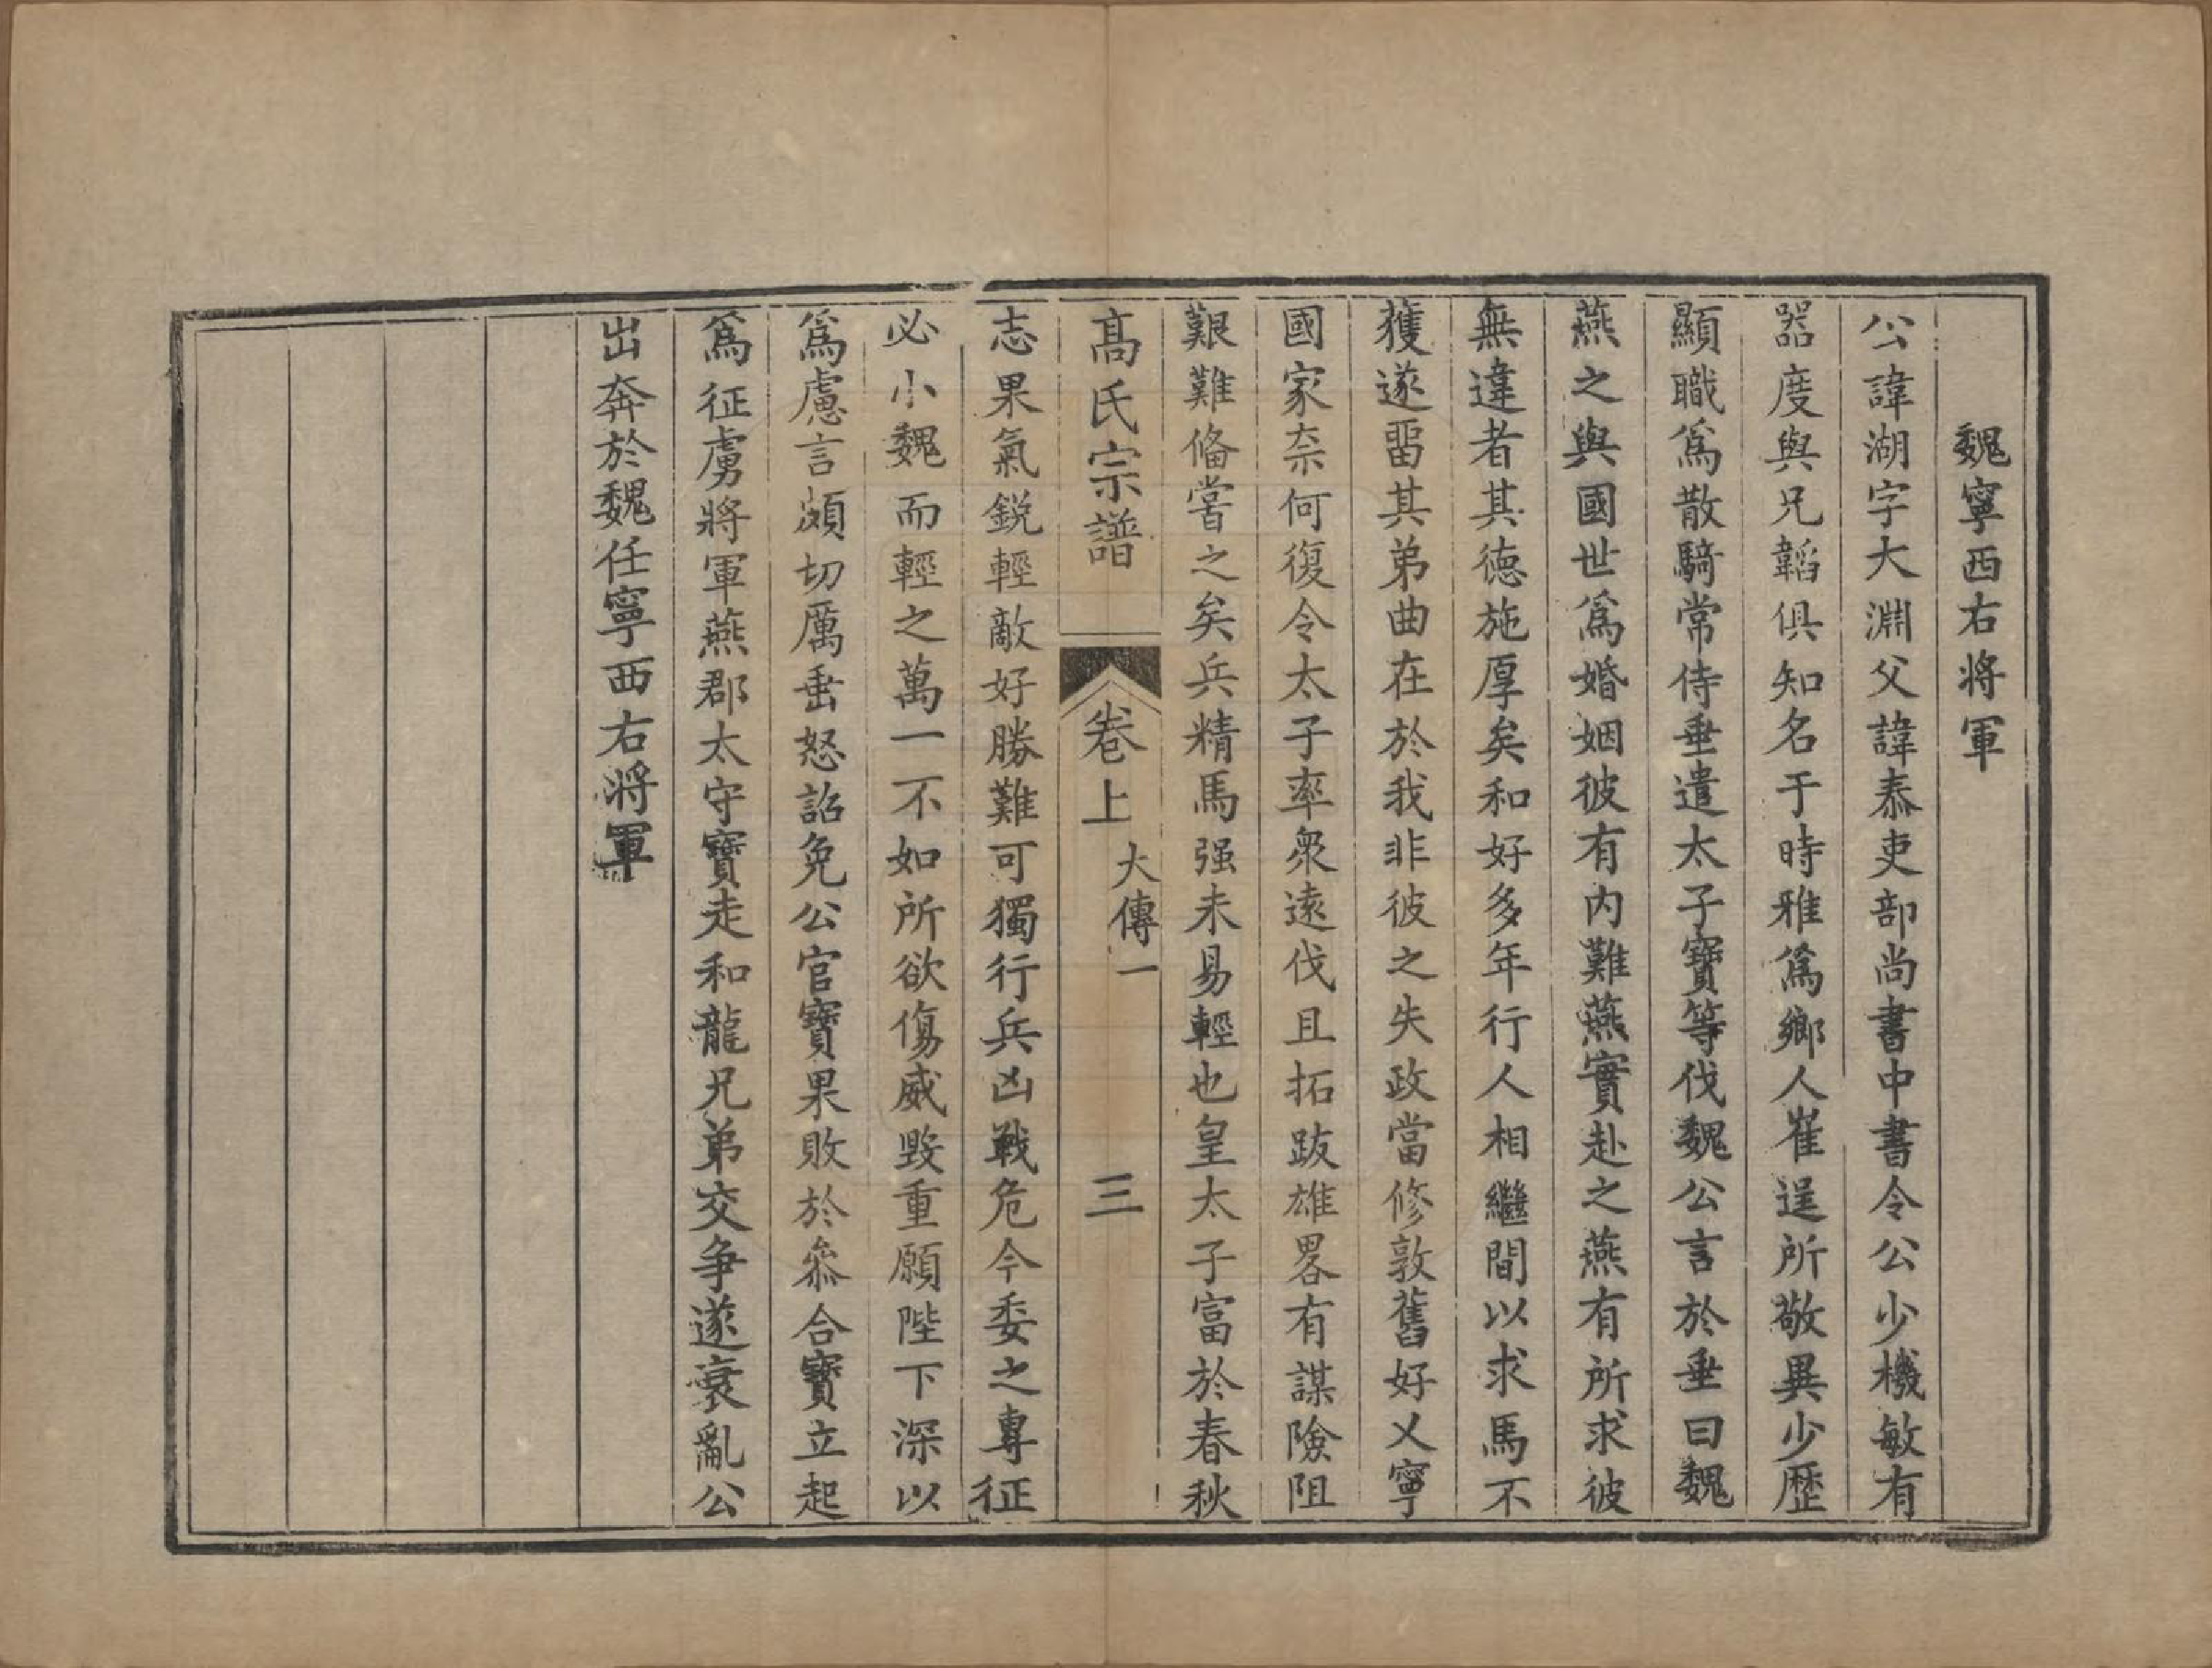 魏寧西右將軍
公諱湖字大淵父諱泰吏部尚書中書令公少機敏有
器度與兄韜俱知名于時雅爲鄉人崔逞所敬異少歷
顯職爲散騎常侍垂遣太子寶等伐魏公言於垂曰魏
燕之與國世爲婚姻彼有内難燕實赴之燕有所求彼
無違者其德施厚矣和好多年行人相繼間以求馬不
獲遂畱其弟曲在於我非彼之失政當修敦舊好乂寧
國家柰何復令太子率衆遠伐且拓跋雄畧有謀險阻
艱難俻嘗之矣兵精馬强未易輕也皇太子富於春秋
高氏宗譜 卷上 大傳一 三
志果氣鋭輕敵好勝難可獨行兵凶戰危今委之專征
必小魏而輕之萬一不如所欲傷威毀重願陛下深以
爲慮言頗切厲垂怒詔免公官寶果敗於叅合寶立起
爲征虜將軍燕郡太守寶走和龍兄弟交争遂衰亂公
出奔於魏任寧西右將軍